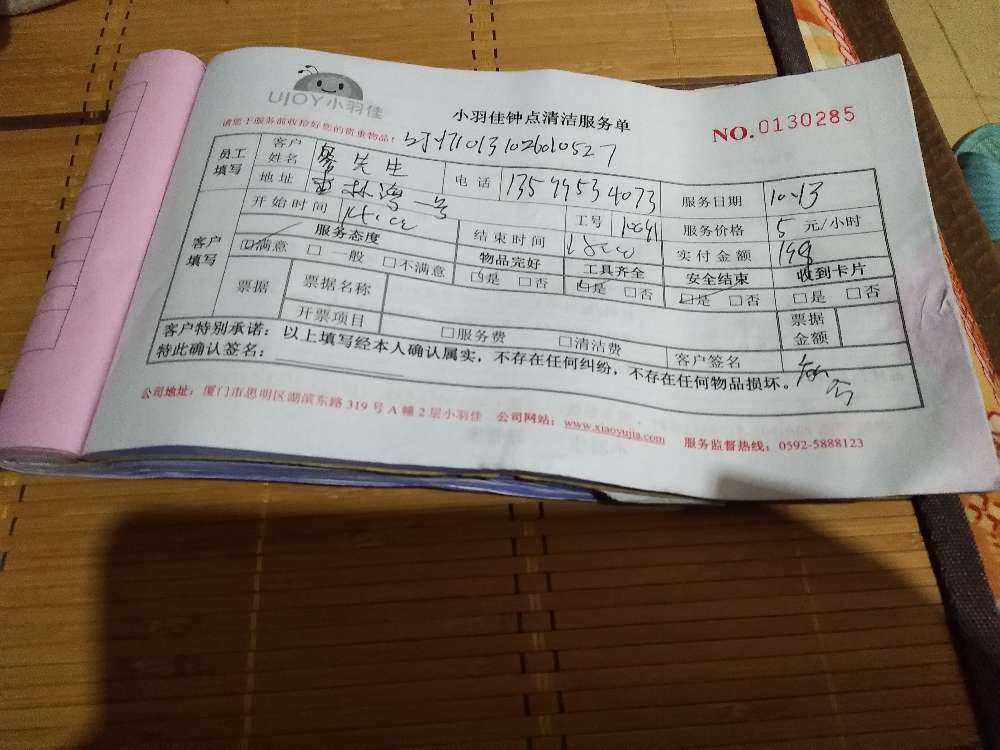 UJOY小羽佳
小羽佳钟点清洁服务单
NO.0130285
请您于服务前收拾好您的贵重物品!
员工填写 客户姓名 先生 电话 13599534073 服务日期 10.13
地址 林湾一号 工号 服务价格 5 元/小时
开始时间 结束时间 实付金额 198
客户填写 服务态度 物品完好 工具齐全 安全结束 收到卡片
☑满意 □一般 □不满意 ☑是 □否 ☑是 □否 ☑是 □否 □是 □否
票据 票据名称 票据金额
开票项目 □服务费 □清洁费 客户签名
客户特别承诺: 以上填写经本人确认属实,不存在任何纠纷,不存在任何物品损坏。
特此确认签名:
公司地址: 厦门市思明区湖滨东路 319 号 A 幢 2 层小羽佳 公司网站: www.xiaoyujia.com 服务监督热线: 0592-5888123